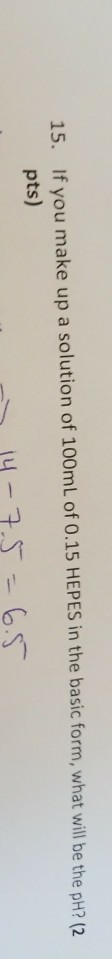 15. If you make up a solution of 100mL of 0.15 HEPES in the basic form, what will be the pH? (2
pts)
14 - 7.5 = 6.5